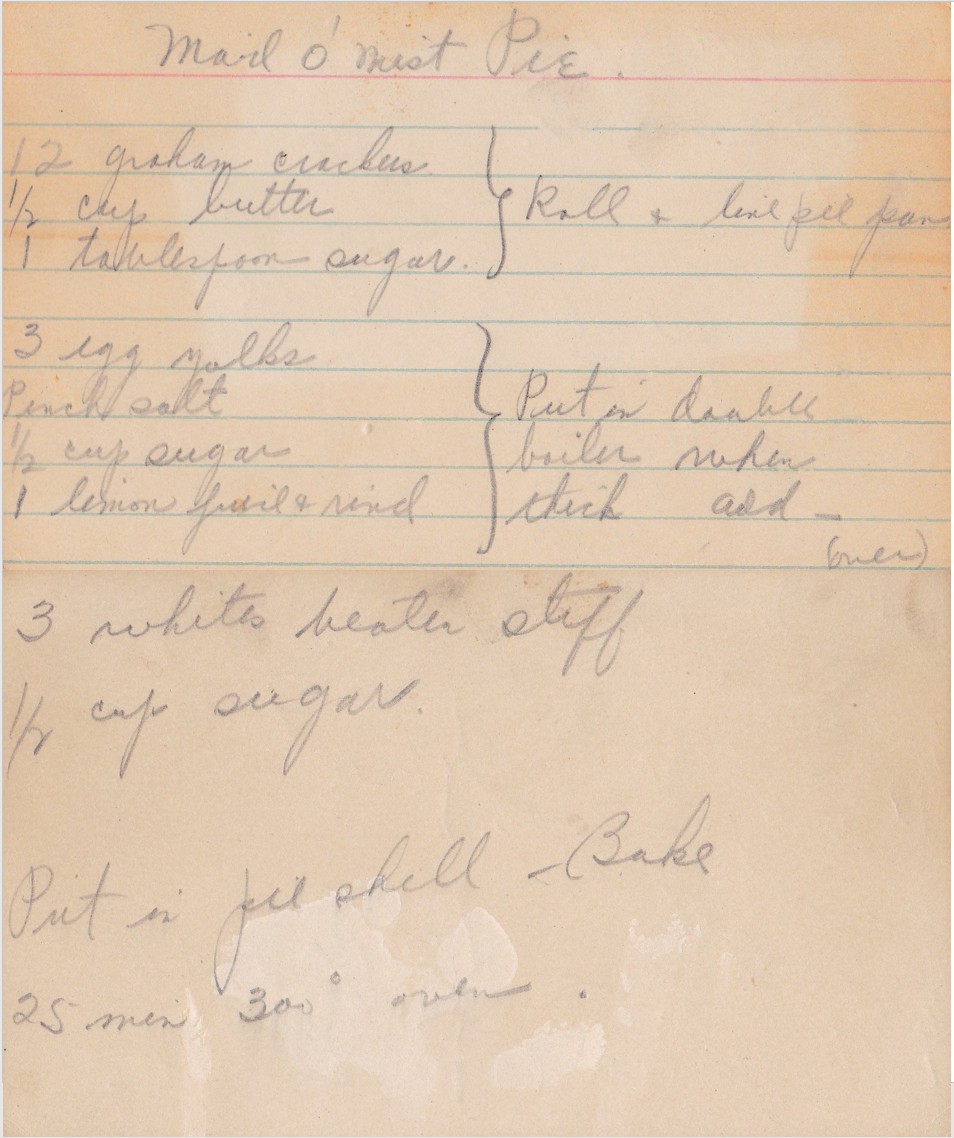 Maid o' mist Pie.
12 graham crackers
1/2 cup butter
1 tablespoon sugar.
Roll + line pie pan
3 egg yolks
Pinch salt
1/2 cup sugar
1 lemon juice + rind
Put in double
boiler when
thick add —
(over)
3 whites beaten stiff
1/2 cup sugar.
Put in pie shell – Bake
25 min 300° oven.